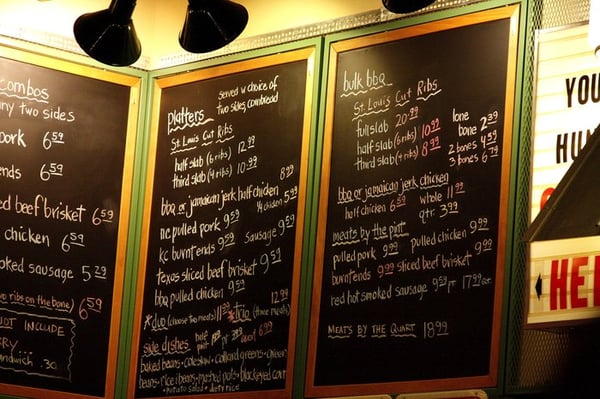 combos
any two sides
pork 6.59
ends 6.59
ed beef brisket 6.59
chicken 6.59
oked sausage 5.29
wo ribs on the bone) 6.59
NOT INCLUDE
RRY
andwich .30
platters
served w choice of
two sides cornbread
St. Louis Cut Ribs
half slab (6 ribs) 12.99
third slab (4 ribs) 10.99
bbq or jamaican jerk half chicken 8.99
1/4 chicken 5.99
nc pulled pork 9.59
kc burnt ends 9.59 sausage 9.59
texas sliced beef brisket 9.59
bbq pulled chicken 9.59
*duo (choose two meats) *trio (three meats) 12.99
side dishes
baked beans • coleslaw • collard greens • green
beans • rice & beans • mashed pots • blackeyed corn
• potato salad • dirty rice
bulk bbq
St. Louis Cut Ribs
full slab 20.99
half slab (6 ribs) 10.99
third slab (4 ribs) 8.99
lone
bone 2.39
2 bones 4.59
3 bones 6.79
bbq or jamaican jerk chicken
half chicken 6.59 whole 11.99
qtr 3.99
meats by the pint
pulled pork 9.99 pulled chicken 9.99
burnt ends 9.99 sliced beef brisket 9.99
red hot smoked sausage 9.59 pt 17.99 qrt
MEATS BY THE QUART 18.99
YOU
HU
HE